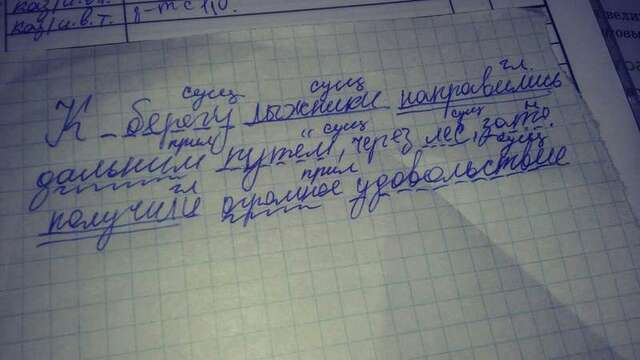 каз/и.в.т. 8-
сущ сущ гл.
К берегу лыжники направились
прил сущ сущ
дальним путём, через лес, зато
гл прил сущ
получили огромное удовольствие